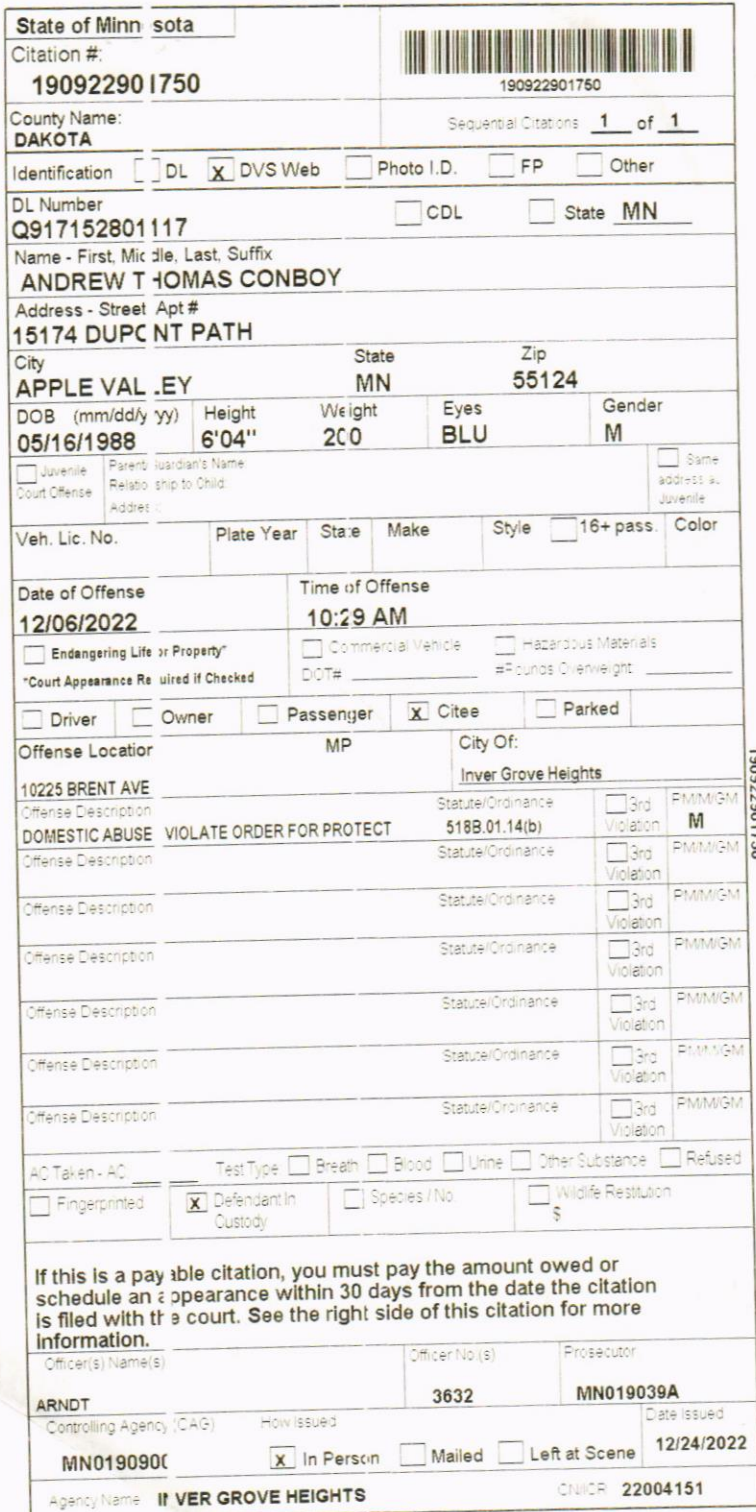 State of Minn sota
Citation #:
190922901750
190922901750
County Name:
DAKOTA
Sequential Citations 1 of 1
Identification DL X DVS Web Photo I.D. FP Other
DL Number
Q917152801117
CDL State MN
Name - First, Middle, Last, Suffix
ANDREW THOMAS CONBOY
Address - Street Apt #
15174 DUPONT PATH
City State Zip
APPLE VALLEY MN 55124
DOB (mm/dd/yyyy) Height Weight Eyes Gender
05/16/1988 6'04" 200 BLU M
Juvenile Court Offense
Parent/Guardian's Name
Relationship to Child:
Address
Same address as Juvenile
Veh. Lic. No. Plate Year State Make Style 16+ pass. Color
Date of Offense Time of Offense
12/06/2022 10:29 AM
Endangering Life or Property*
*Court Appearance Required if Checked
Commercial Vehicle Hazardous Materials
DOT# #Pounds Overweight:
Driver Owner Passenger X Citee Parked
Offense Location MP City Of:
10225 BRENT AVE Inver Grove Heights
Offense Description Statute/Ordinance 3rd Violation PM/M/GM
DOMESTIC ABUSE VIOLATE ORDER FOR PROTECT 518B.01.14(b) M
Offense Description Statute/Ordinance 3rd Violation PM/M/GM
Offense Description Statute/Ordinance 3rd Violation PM/M/GM
Offense Description Statute/Ordinance 3rd Violation PM/M/GM
Offense Description Statute/Ordinance 3rd Violation PM/M/GM
Offense Description Statute/Ordinance 3rd Violation PM/M/GM
Offense Description Statute/Ordinance 3rd Violation PM/M/GM
AC Taken - AC: Test Type Breath Blood Urine Other Substance Refused
Fingerprinted X Defendant In Custody Species / No. Wildlife Restitution
$
If this is a payable citation, you must pay the amount owed or
schedule an appearance within 30 days from the date the citation
is filed with the court. See the right side of this citation for more
information.
Officer(s) Name(s) Officer No.(s) Prosecutor
ARNDT 3632 MN019039A
Controlling Agency (CAG) How Issued Date Issued
MN0190900 X In Person Mailed Left at Scene 12/24/2022
Agency Name INVER GROVE HEIGHTS CN/ICR 22004151